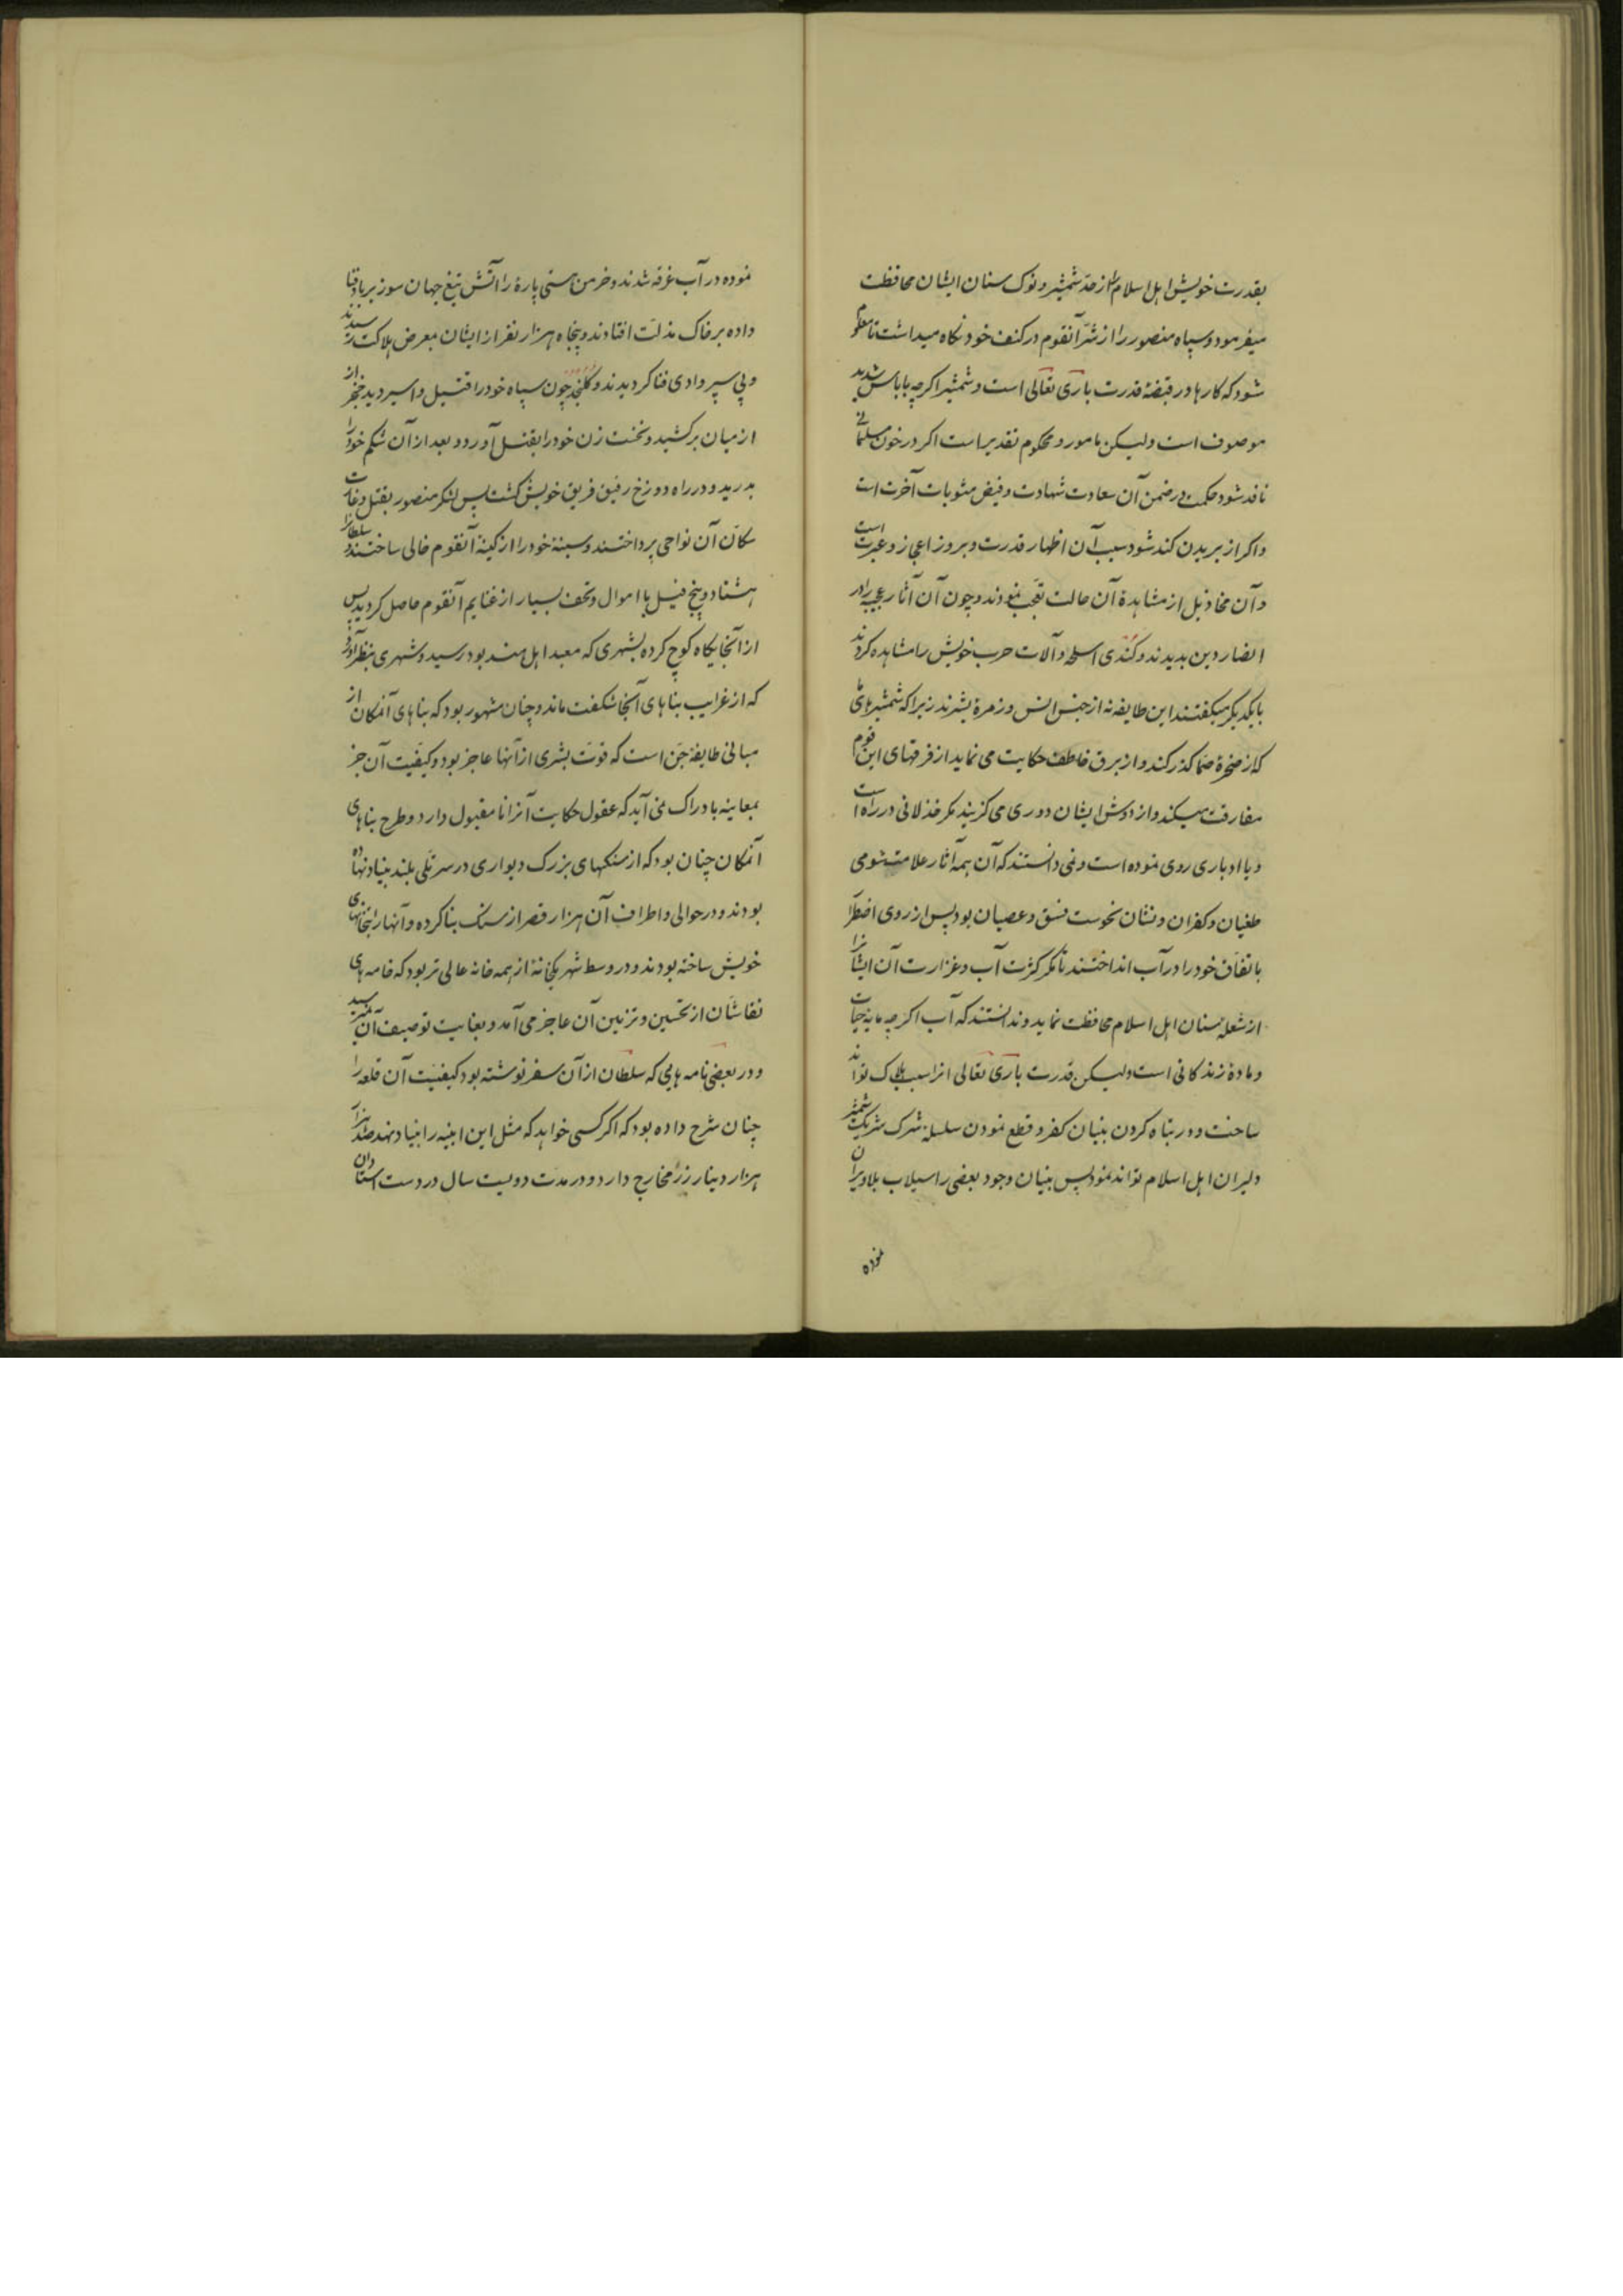 بقدرت خویش اهل اسلام را از حدّ شمشیر و نوک سنان ایشان محافظت
میفرمود و سپاه منصور را از شرّ آنقوم در کنف خود نکاه میداشت تا معلوم
شود که کارها در قبضهٔ قدرت باری تعالی است و شمشیر اکرچه بابأس شدید
موصوف است ولیکن مامور و محکوم تقدیر است اکر در خون مسلمانی
نافذ شود حکمت در ضمن آن سعادت شهادت و فیض مثوبات آخرت است
و اکر از بریدن کند شود سبب آن اظهار قدرت و بروز اعجاز و عبرت است
و آن مخاذیل از مشاهدهٔ آن حالت تعجّب نمودند و چون آن آثار عجیبه را در
انصار دین بدیدند و کندی اسلحه و آلات حرب خویش را مشاهده کردند
با یکدیکر میکفتند این طایفه نه از جنس انس و زمرهٔ بشرند زیرا که شمشیرهای ما
که از صخرهٔ صمّا کذر کند و از برق خاطف حکایت می نماید از فرقهای این قوم
مفارقت میکند و از دوش ایشان دوری می کزیند مکر خذلانی در راه است
و یا ادباری روی نموده است و نمی دانستند که آن همه آثار علامت شومی
طغیان و کفران و نشان نحوست فسق و عصیان بود پس از روی اضطرار
باتفاق خود را در آب انداختند تا مکر کثرت آب و غزارت آن ایشانرا
از شعله سنان اهل اسلام محافظت نماید و ندانستند که آب اکرچه مایه حیات
و مادهٔ زندکانی است ولیکن قدرت باری تعالی انرا سبب هلاک تواند
ساخت و در تباه کردن بنیان کفر و قطع نمودن سلسله شرک شریک شمشیر
دلیران اهل اسلام تواند نمود پس بنیان وجود بعضی را سیلاب بلا ویران
نموده
نموده در آب غرقه شدند و خرمن هستی پارهٔ را آتش تیغ جهان سوز برباد فنا
داده بر خاک مذلّت افتادند و پنجاه هزار نفر از ایشان بمعرض هلاکت رسیدند
و پی سپر وادی فنا کردیدند و کلنجد چون سپاه خود را قتیل و اسیر دید خنجر از
از میان برکشید و نخست زن خود را بقتل آورد و بعد از آن شکم خود را
بدرید و در راه دوزخ رفیق فریق خویش کشت پس لشکر منصور بقتل و غارت
سکّان آن نواحی پرداختند و سینهٔ خود را از کینهٔ آنقوم خالی ساختند و سلطانرا
هشتاد و پنج فیل با اموال و تحف بسیار از غنایم آنقوم حاصل کردید پس
از آنجایکاه کوچ کرده بشهری که معبد اهل هند بود رسید و شهری بنظر آورد
که از غرایب بناهای آنجا شکفت ماند و چنان مشهور بود که بناهای آنمکان از
مبانی طایفهٔ جنّ است که قوّت بشری از آنها عاجز بود و کیفیّت آن جز
بمعاینه بادراک نمی آید که عقول حکایت آنرا نامقبول دارد و طرح بناهای
آنمکان چنان بود که از سنکهای بزرک دیواری در سر تلّی بلند بنیاد نهاده
بودند و در حوالی و اطراف آن هزار قصر از سنک بنا کرده و آنها را بتخانهای
خویش ساخته بودند و در وسط شهر یکخانهٔ از همه خانه عالی تر بود که خامه های
نقاشان از تحسین و تزیین آن عاجز می آمد و بغایت توصیف آن نمیرسید
و در بعضی نامه هایی که سلطان از آن سفر نوشته بود کیفیّت آن قلعه را
چنان شرح داده بود که اکر کسی خواهد که مثل این ابنیه را بنیاد نهد صد هزار
هزار دینار زر مخارج دارد و در مدّت دویست سال در دست استادان